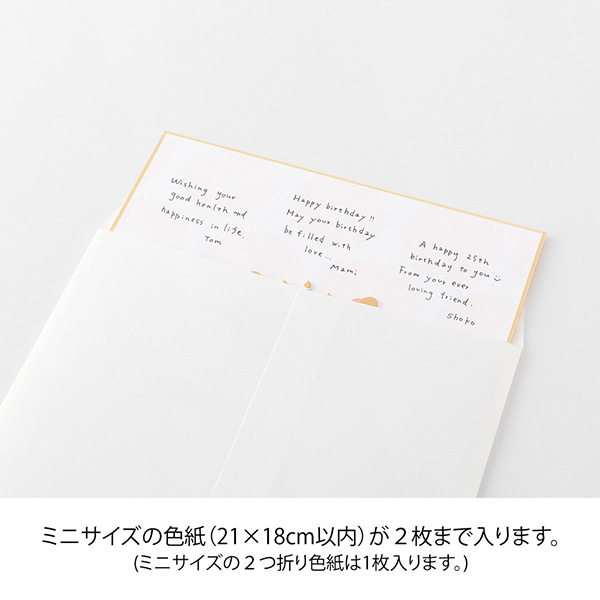 Wishing your
good health and
happiness in life.
Tom
Happy birthday!!
May your birthday
be filled with
love...
Mami
A happy 25th
birthday to you
From your ever
loving friend.
Shoko
ミニサイズの色紙（21×18cm以内）が２枚まで入ります。
(ミニサイズの２つ折り色紙は1枚入ります。)